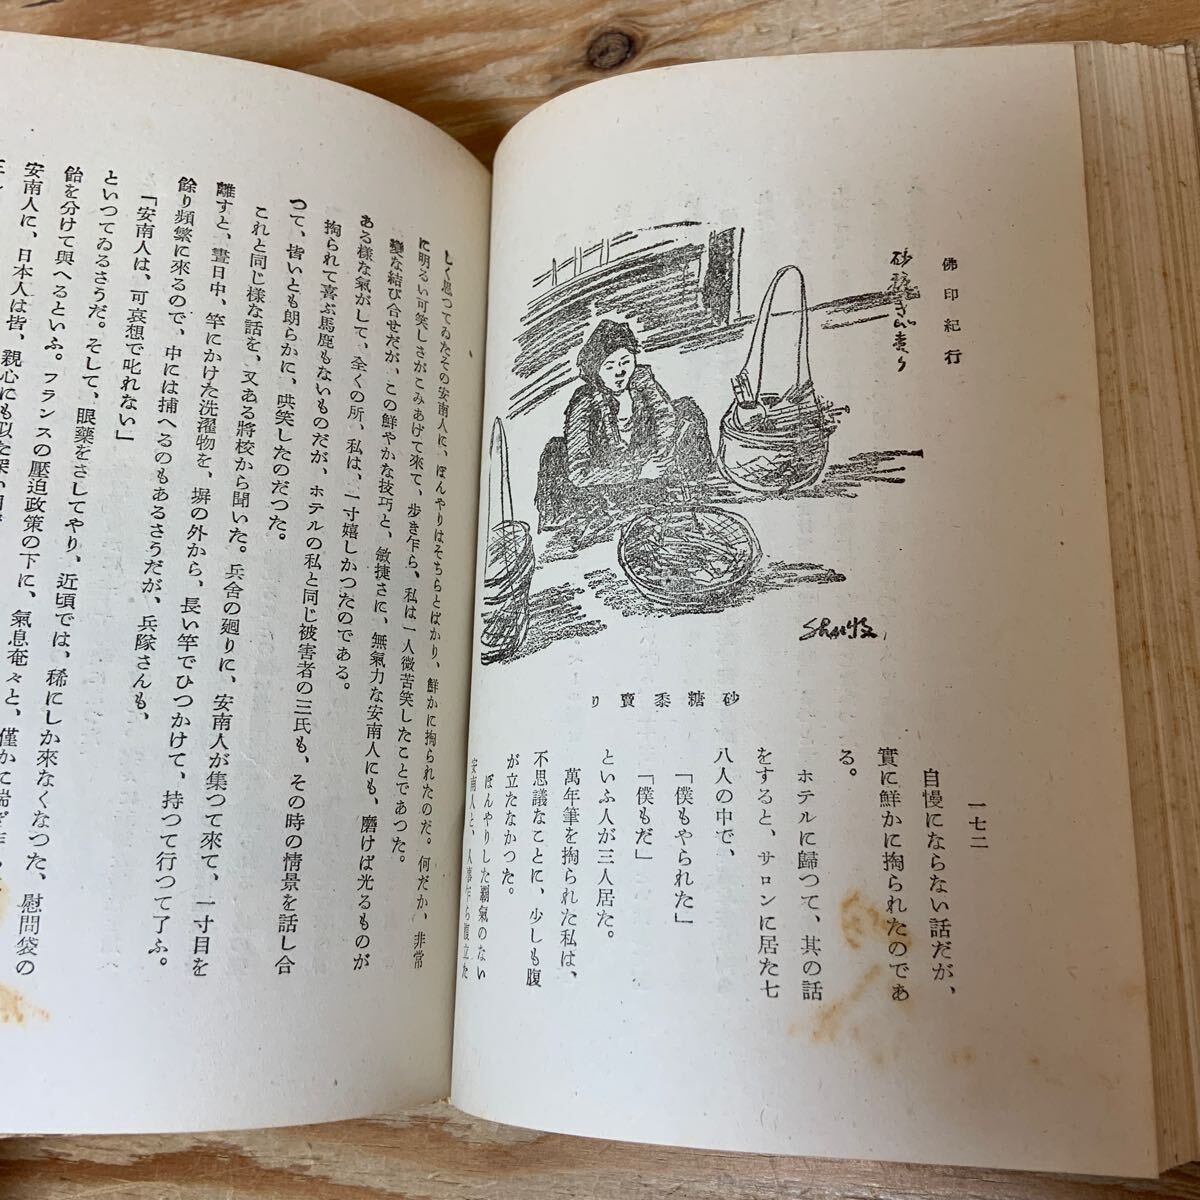 佛印紀行
砂糖きび賣り
砂糖黍賣り
一七二
自慢にならない話だが、
實に鮮かに掏られたのであ
る。
ホテルに歸つて、其の話
をすると、サロンに居た七
八人の中で、
「僕もやられた」
「僕もだ」
といふ人が三人居た。
萬年筆を掏られた私は、
不思議なことに、少しも腹
が立たなかつた。
ぼんやりした覇氣のない
安南人と、人事乍ら腹立た
しく思つてゐたその安南人に、ぼんやりはそちらとばかり、鮮かに掏られたのだ。何だか、非常
に明るい可笑しさがこみあげて來て、歩き乍ら、私は一人微苦笑したことであつた。
變な結び合せだが、この鮮やかな技巧と、敏捷さに、無氣力な安南人にも、磨けば光るものが
ある樣な氣がして、全くの所、私は、一寸嬉しかつたのである。
掏られて喜ぶ馬鹿もないものだが、ホテルの私と同じ被害者の三氏も、その時の情景を話し合
つて、皆いとも朗らかに、哄笑したのだつた。
これと同じ樣な話を、又ある將校から聞いた。兵舍の廻りに、安南人が集つて來て、一寸目を
離すと、晝日中、竿にかけた洗濯物を、塀の外から、長い竿でひつかけて、持つて行つて了ふ。
餘り頻繁に來るので、中には捕へるのもあるさうだが、兵隊さんも、
「安南人は、可哀想で叱れない」
といつてゐるさうだ。そして、眼藥をさしてやり、近頃では、稀にしか來なくなつた、慰問袋の
飴を分けて與へるといふ。フランスの壓迫政策の下に、氣息奄々と、僅かに喘ぎ
安南人に、日本人は皆、親心にも似た深い同